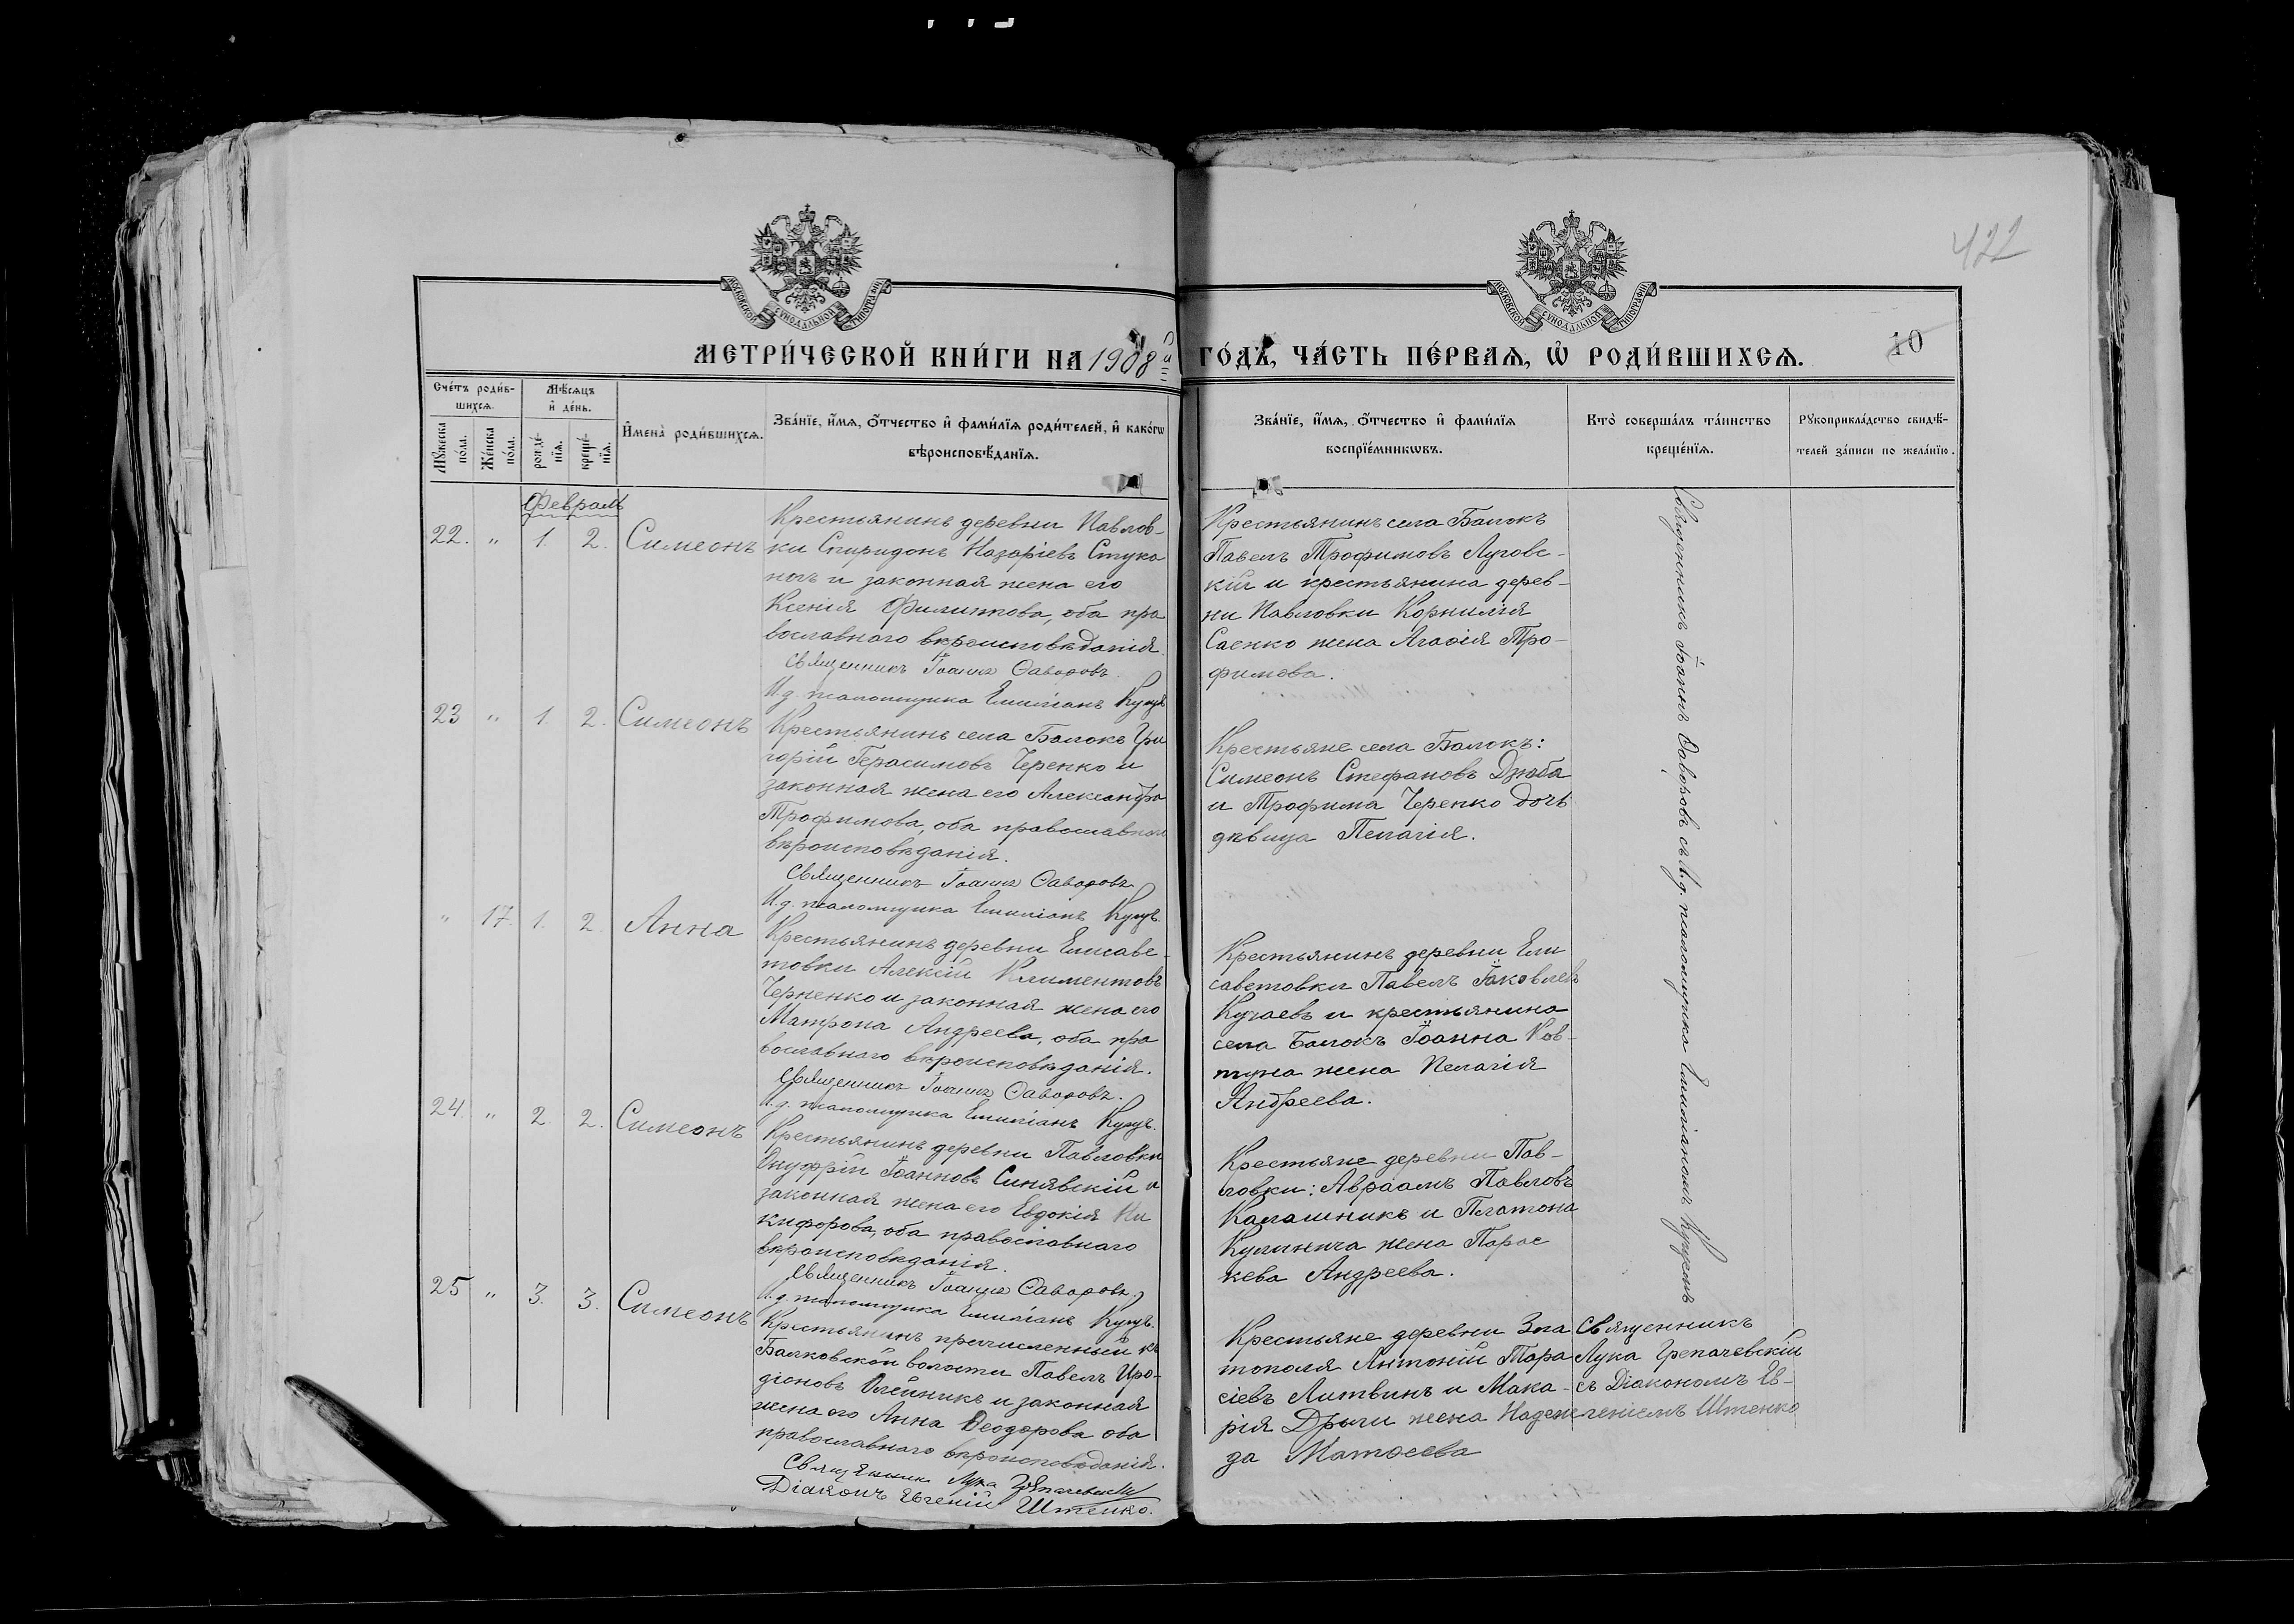 422
МОСКОВСКОЙ СУНОДАЛЬНОЙ ТИПОГРАФІИ
МОСКОВСКОЙ СУНОДАЛЬНОЙ ТИПОГРАФІИ
МЕТРИ́ЧЕСКОЙ КНИ́ГИ НА 1908й ГО́ДЪ, ЧА́СТЬ ПЕ́РВАѦ, Ѡ РОДИ́ВШИХСѦ.
10
Сче́тъ роди́в-
шихсѧ.
Мꙋжеска по́ла.
Же́нска по́ла.
Мѣ́сѧцъ
и҆ де́нь.
рожде́-
нїѧ.
креще́-
нїѧ.
И҆мена̀ роди́вшихсѧ.
Зва́нїе, и҆́мѧ, ѻ҆́тчество и҆ фами́лїѧ роди́телей, и҆ како́гѡ
вѣроисповѣ́данїѧ.
Зва́нїе, и҆́мѧ, ѻ҆́тчество и҆ фами́лїѧ
воспрїе́мникѡвъ.
Кто̀ соверша́лъ та́инство
креще́нїѧ.
Рꙋкоприкла́дство свидѣ́-
телей за́писи по жела́нїю.
Февраль
22. " 1. 2. Симеонъ
Крестьянинъ деревни Павлов-
ки Спиридонъ Назаріевъ Стука
ногъ и законная жена его
Ксенія Филиппова, оба пра
вославнаго вѣроисповѣданія.
Священникъ Іоаннъ Ѳаворовъ.
И.д. псаломщика Емиліанъ Куцъ
Крестьянинъ села Балокъ
Павелъ Трофимовъ Луговс-
кій и крестьянина дерев-
ни Павловки Корнилія
Саенко жена Агаѳія Тро-
фимова.
23 " 1. 2. Симеонъ
Крестьянинъ села Балокъ Гри
горій Герасимовъ Черенко и
законная жена его Александра
Трофимова, оба православнаго
вѣроисповѣданія.
Священникъ Іоаннъ Ѳаворовъ
И.д. псаломщика Емиліанъ Куцъ.
Крестьяне села Балокъ:
Симеонъ Стефановъ Дзюба
и Трофима Черенко дочь
дѣвица Пелагія.
" 17. 1. 2. Анна
Крестьянинъ деревни Елисаве-
товки Алексій Климентовъ
Черненко и законная жена его
Матрона Андреева, оба пра
вославнаго вѣроисповѣданія.
Священникъ Іоаннъ Ѳаворовъ.
И.д. псаломщика Емиліанъ Куцъ.
Крестьянинъ деревни Ели
саветовки Павелъ Іаковлевъ
и крестьянина
села Балокъ Іоанна Ков-
туна жена Пелагія
Андреева.
24. " 2. 2. Симеонъ
Крестьянинъ деревни Павловки
Онуфрій Іоанновъ Синявскій и
законная жена его Евдокія Ни
кифорова, оба православнаго
вѣроисповѣданія.
Священникъ Іоаннъ Ѳаворовъ
И.д. псаломщика Емиліанъ Куцъ.
Крестьяне деревни Пав-
ловки: Авраамъ Павловъ
Калашникъ и Платона
Кулинича жена Парас
кева Андреева.
Священникъ Іоаннъ Ѳаворовъ съ И.д. псаломщика Емиліаномъ Куцемъ
25 " 3. 3. Симеонъ
Крестьянинъ причисленный къ
Балковской волости Павелъ Иро-
діоновъ Олейникъ и законная
жена его Анна Ѳеодорова оба
православнаго вѣроисповѣданія.
Священникъ Лука
Діаконъ Евгеній Штенко.
Крестьяне деревни Зла
тополя Антоній Тара
сіевъ Литвинъ и Мака-
рія Дрыги жена Надеж
да Матѳеева
Священникъ
Лука
съ Діакономъ Ев-
геніемъ Штенко